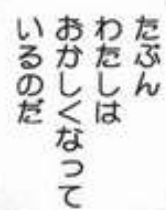 たぶん
わたしは
おかしくなって
いるのだ